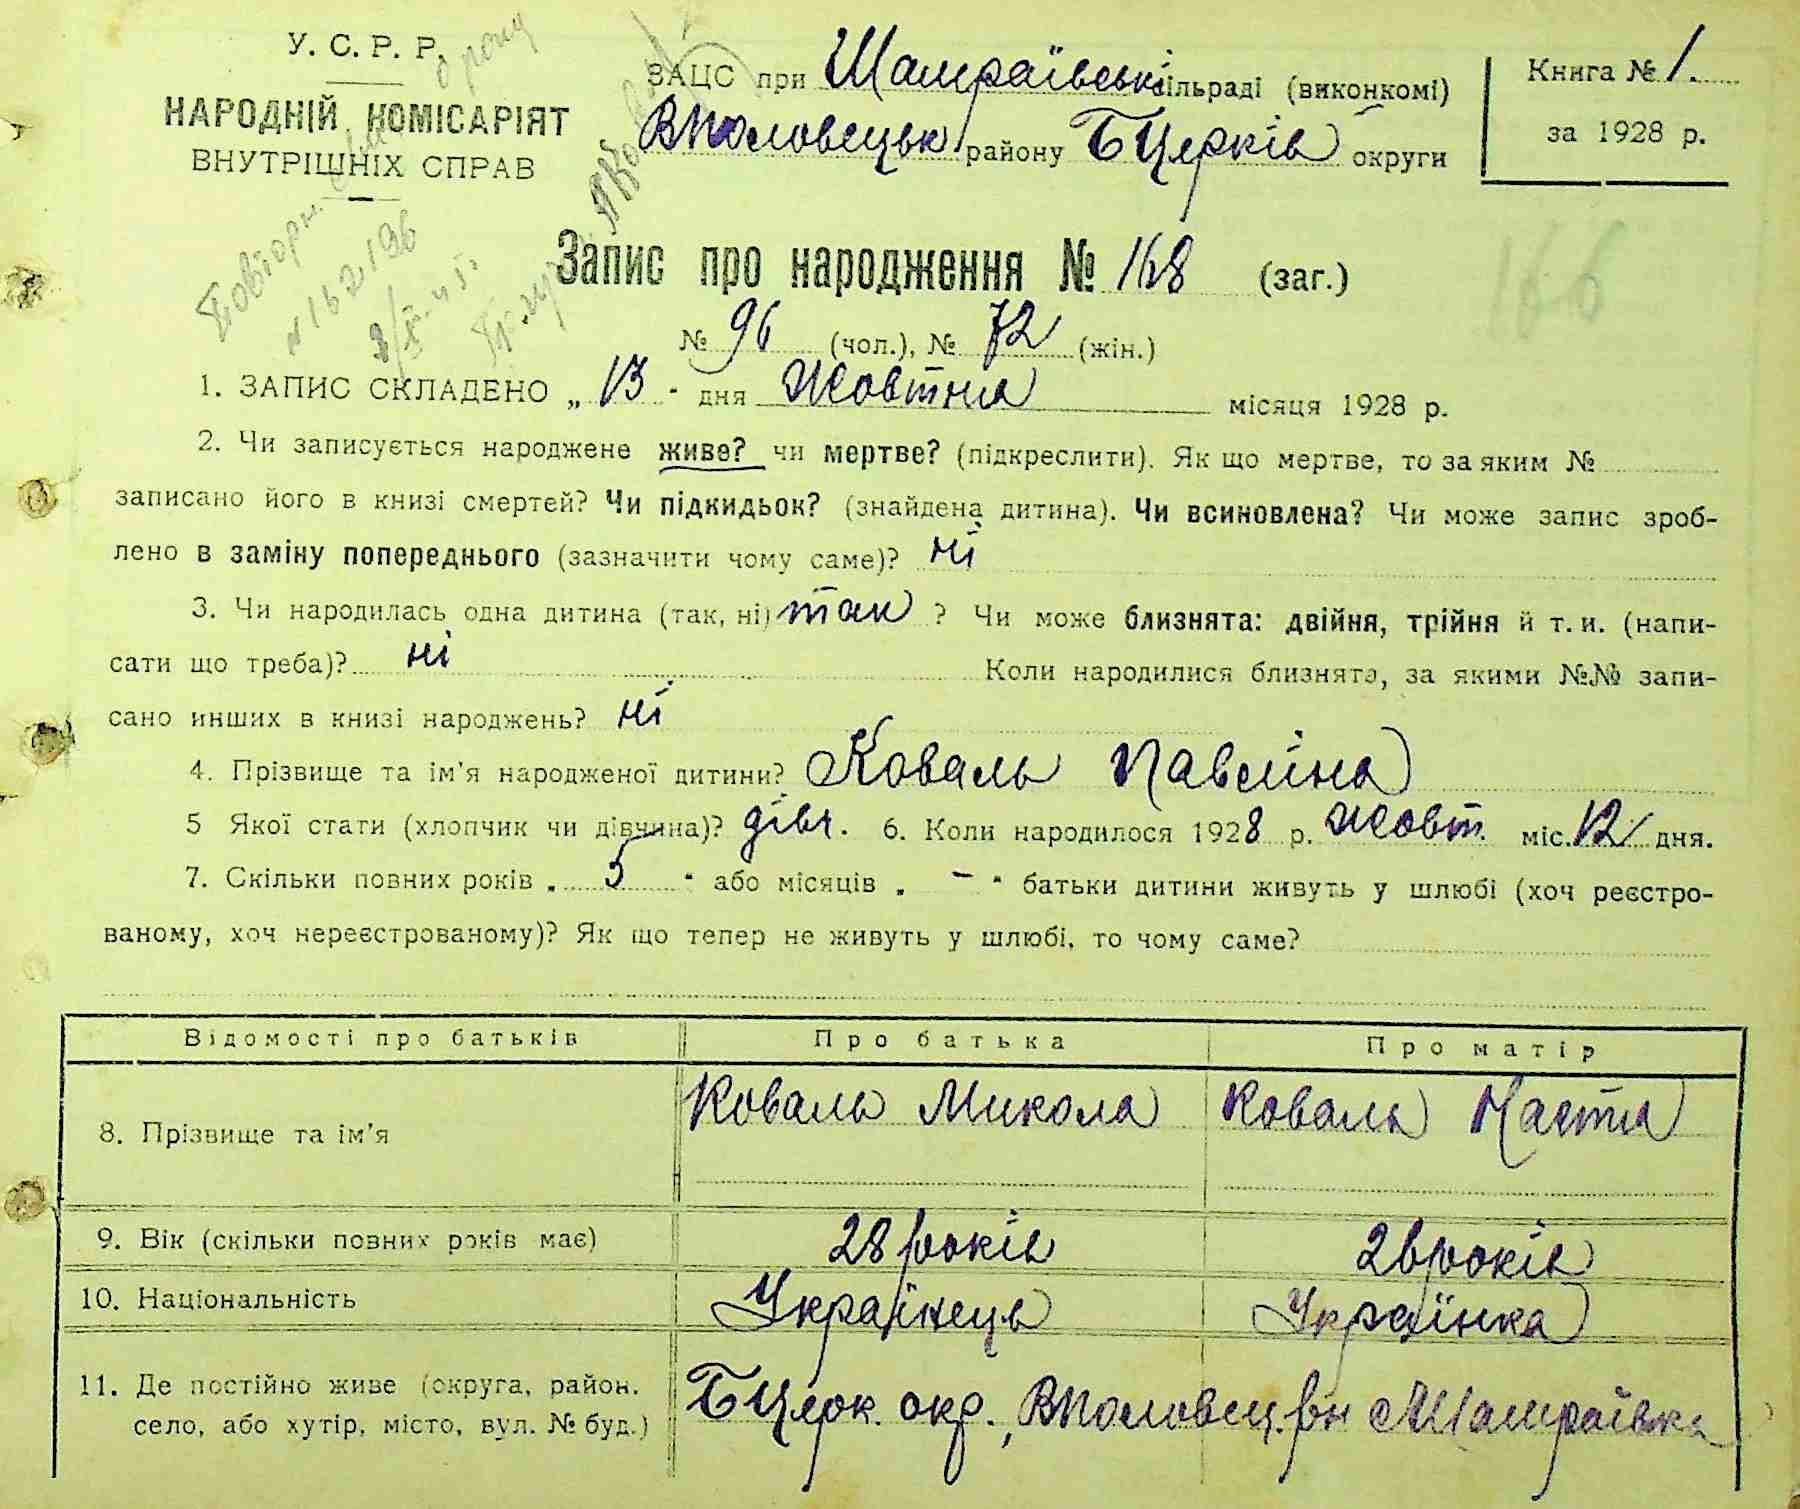 У. С. Р. Р.
НАРОДНІЙ КОМІСАРІЯТ
ВНУТРІШНІХ СПРАВ
ЗАЦС при Шамраївській сільраді (виконкомі)
ВПоловецьк району БЦерків округи
Книга № 1.
за 1928 р.
Повторн.
№ 162196
Запис про народження № 168 (заг.)
166
№ 96 (чол.), № 72 (жін.)
1. ЗАПИС СКЛАДЕНО „ 13 " дня Жовтня місяця 1928 р.
2. Чи записується народжене живе? чи мертве? (підкреслити). Як що мертве, то за яким №
записано його в книзі смертей? Чи підкидьок? (знайдена дитина). Чи всиновлена? Чи може запис зроб-
лено в заміну попереднього (зазначити чому саме)? ні
3. Чи народилась одна дитина (так, ні) так ? Чи може близнята: двійня, трійня й т. и. (напи-
сати що треба)? ні Коли народилися близнята, за якими №№ запи-
сано инших в книзі народжень? ні
4. Прізвище та ім'я народженої дитини? Коваль Павліна
5 Якої стати (хлопчик чи дівчина)? дівч. 6. Коли народилося 1928 р. Жовт. міс. 12 дня.
7. Скільки повних років „ 5 " або місяців „ – " батьки дитини живуть у шлюбі (хоч реєстро-
ваному, хоч нереєстрованому)? Як що тепер не живуть у шлюбі, то чому саме?
Відомості про батьків Про батька Про матір
8. Прізвище та ім'я Коваль Микола Коваль Настя
9. Вік (скільки повних років має) 28 років 26 років
10. Національність Українець Українка
11. Де постійно живе (округа, район,
село, або хутір, місто, вул. № буд.) БЦерк. окр., ВПоловец. рн с Шамраївка